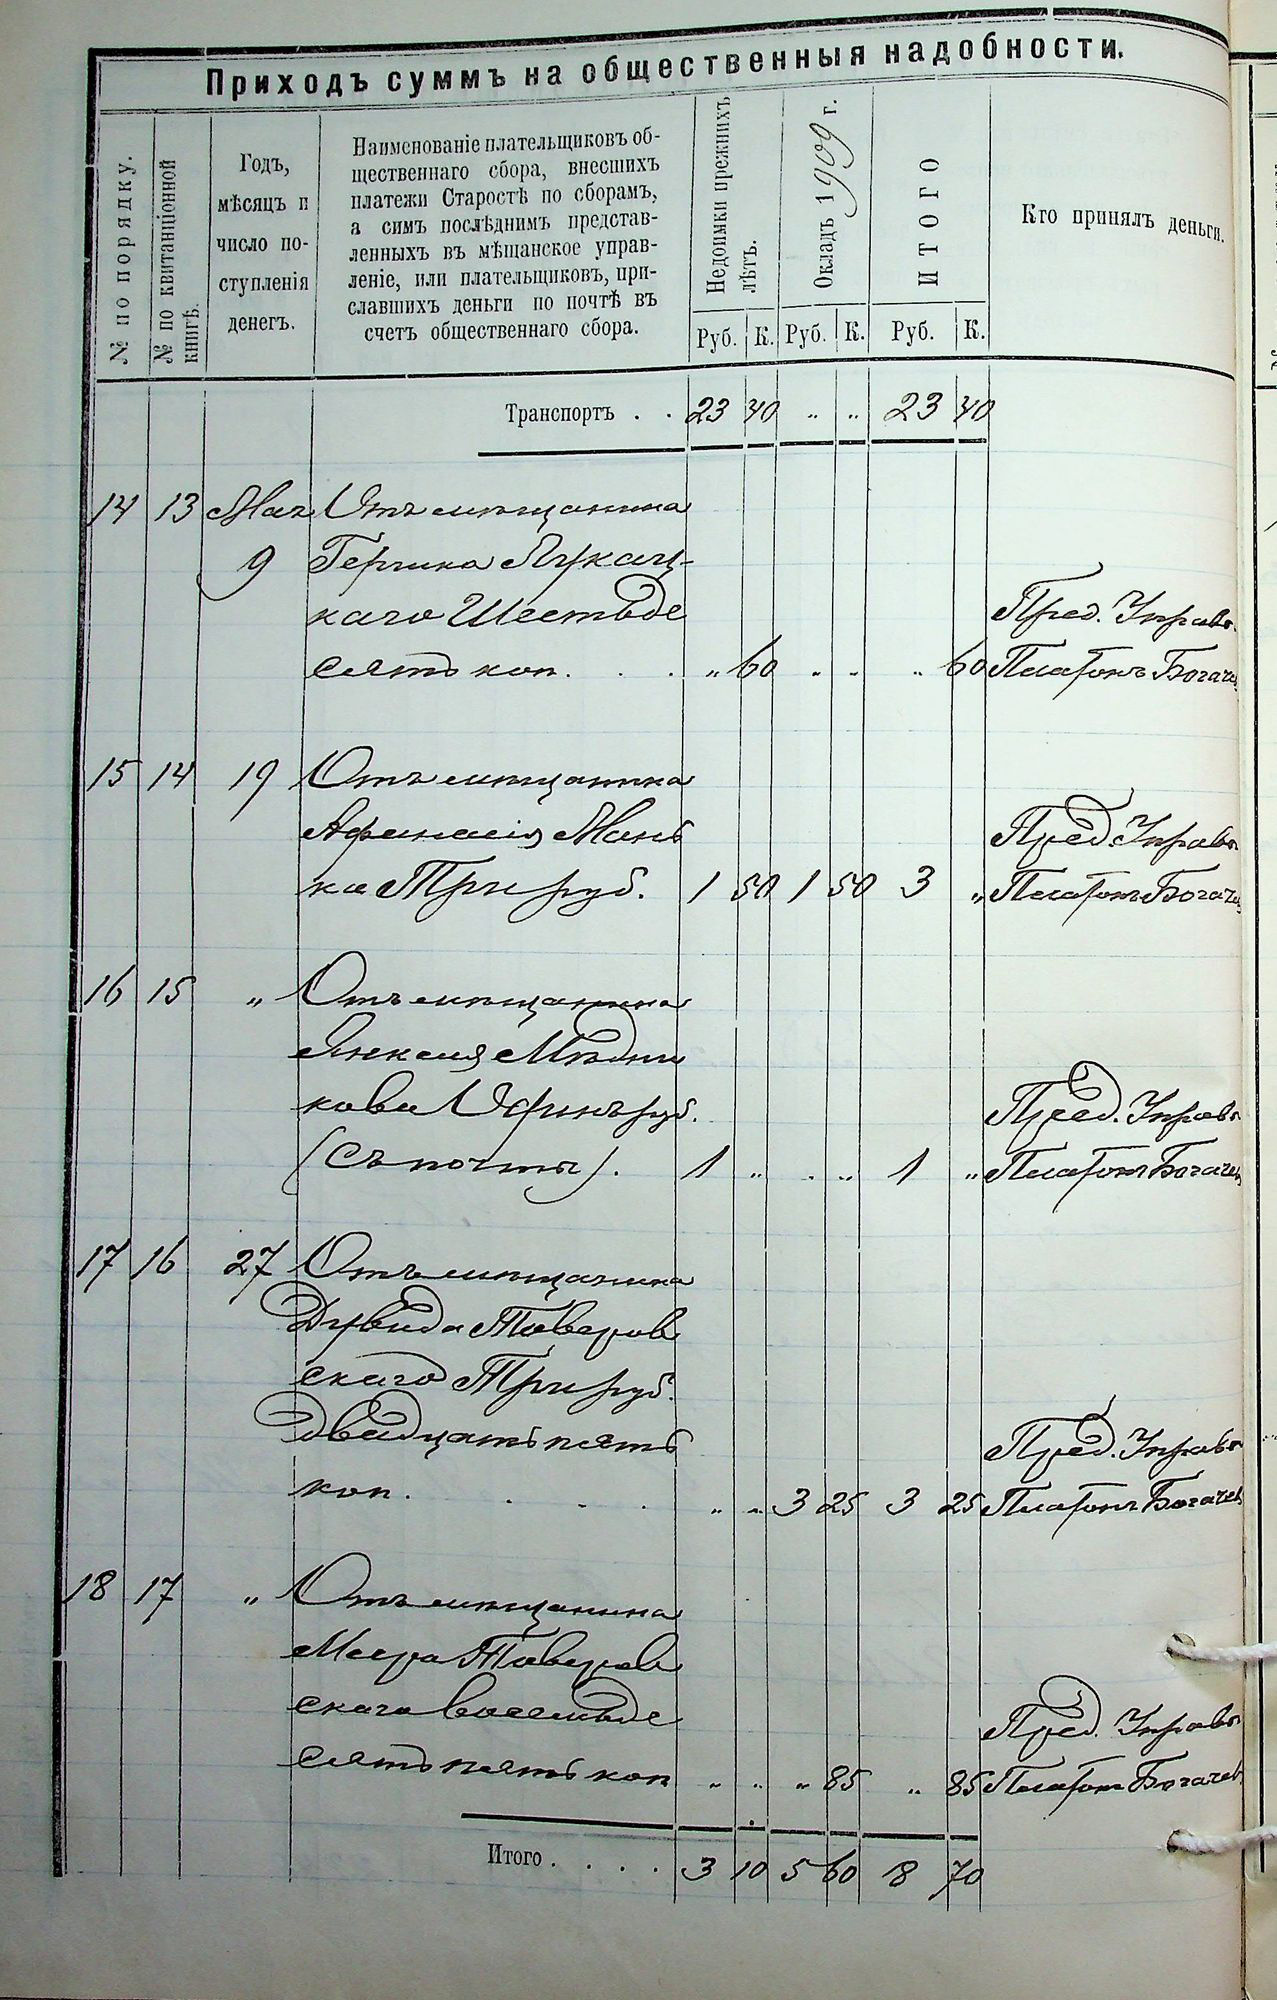 Приходъ суммъ на общественныя надобности.
№ по порядку.
№ по квитанціонной книгѣ.
Годъ,
мѣсяцъ и
число по-
ступленія
денегъ.
Наименованіе плательщиковъ об-
щественнаго сбора, внесшихъ
платежи Старостѣ по сборамъ,
а симъ послѣднимъ представ-
ленныхъ въ мѣщанское управ-
леніе, или плательщиковъ, при-
славшихъ деньги по почтѣ въ
счетъ общественнаго сбора.
Недоимки прежнихъ лѣтъ.
Окладъ 1909 г.
ИТОГО
Кто принялъ деньги.
Руб. К. Руб. К. Руб. К.
Транспортъ . . 23 40 " " 23 40
14 13 Мая Отъ мѣщанина
9 Гершка
каго Шестьде
сятъ коп. . . . " 60 " " " 60
Пред. Управы
Платонъ Богачев
15 14 19 Отъ мѣщанина
Афанасія Мань
ка Три руб. 1 50 1 50 3 "
Пред. Управы
Платонъ Богачев
16 15 " Отъ мѣщанина
Алексея Мѣдни
кова Одинъ руб.
(Съ почты). 1 " " " 1 "
Пред. Управы
Платонъ Богачев
17 16 27 Отъ мѣщанина
Дувида Таверов
скаго Три руб.
двадцать пять
коп. . . . . " " 3 25 3 25
Пред. Управы
Платонъ Богачев
18 17 " Отъ мѣщанина
Меера Таверов
скаго Восемьде
сятъ пять коп " " " 85 " 85
Пред. Управы
Платонъ Богачев
Итого . . . . 3 10 5 60 8 70